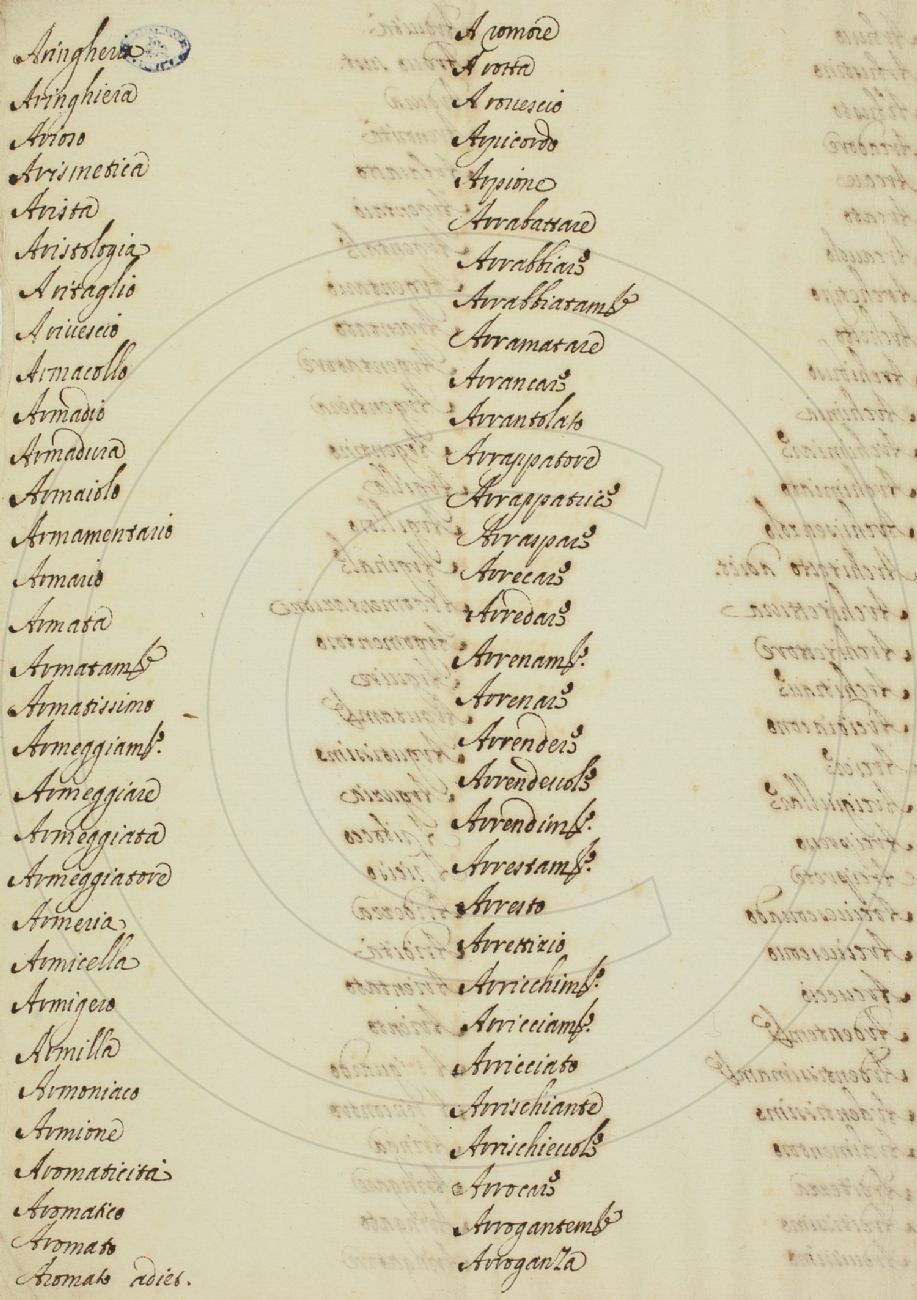 Aringheria
Aringhiera
Arioso
Arismetica
Arista
Aristologia
Aritaglio
Arivescio
Armacollo
Armadio
Armadura
Armaiolo
Armamentario
Armario
Armata
Armatamte
Armatissimo
Armeggiamto.
Armeggiare
Armeggiata
Armeggiatore
Armeria
Armicella
Armigero
Armilla
Armoniaco
Armione
Aromaticità
Aromatico
Aromato
Aromato adiet.
Aromore
Arotta
Arovescio
Arpicordo
Arpione
Arrabattare
Arrabbiare
Arrabbiatamte
Arramatare
Arrancare
Arrantolato
Arrappatore
Arrappatrice
Arraspare
Arrecare
Arredare
Arrenamto.
Arrenare
Arrendere
Arrendevole
Arrendimto.
Arrestamto.
Arresto
Arrettizio
Arricchimto.
Arricciamto.
Arricciato
Arrischiante
Arrischievole
Arrocare
Arrogantemte
Arroganza